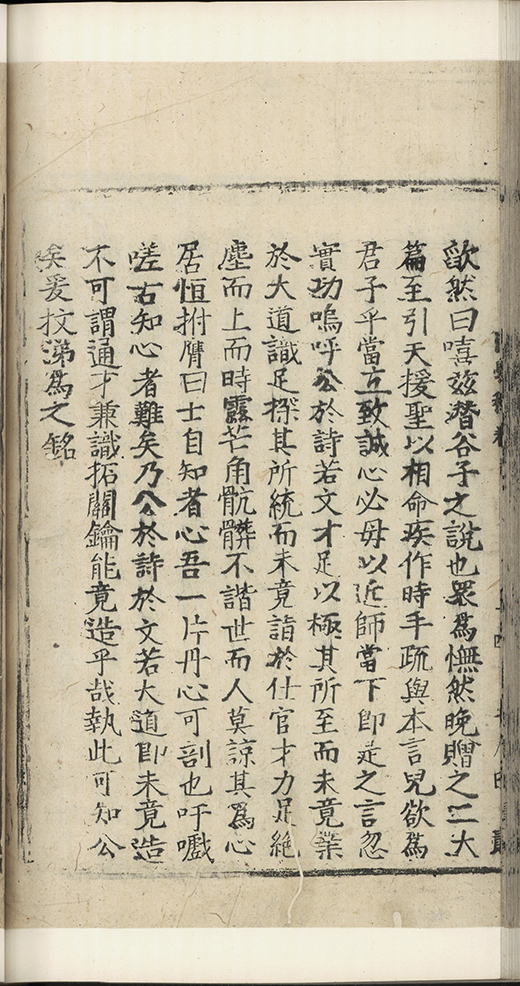 歔然曰嘻玆潛谷子之說也衆爲憮然晚贈之二大
篇至引天援聖以相命疾作時手疏與本言兒欲爲
君子乎當立致誠心必毋以近師當下即是之言忽
實功嗚呼公於詩若文才足以極其所至而未竟業
於大道識足探其所統而未竟詣於仕官才力足絶
塵而上而時露芒角骯髒不諧世而人莫諒其爲心
居恒拊膺曰士自知者心吾一片丹心可剖也吁戲
嗟古知心者難矣乃公於詩於文若大道即未竟造
不可謂通才兼識拓關鑰能竟造乎哉執此可知公
矣爰抆涕爲之銘